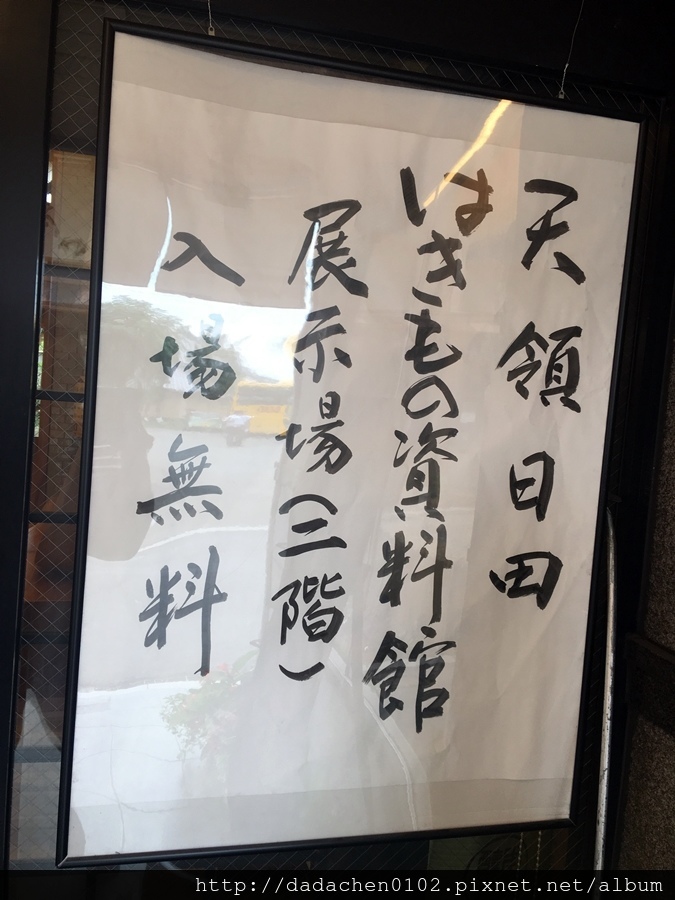 天領日田
はきもの資料館
展示場(二階)
入場無料
http://dadachen0102.pixnet.net/album